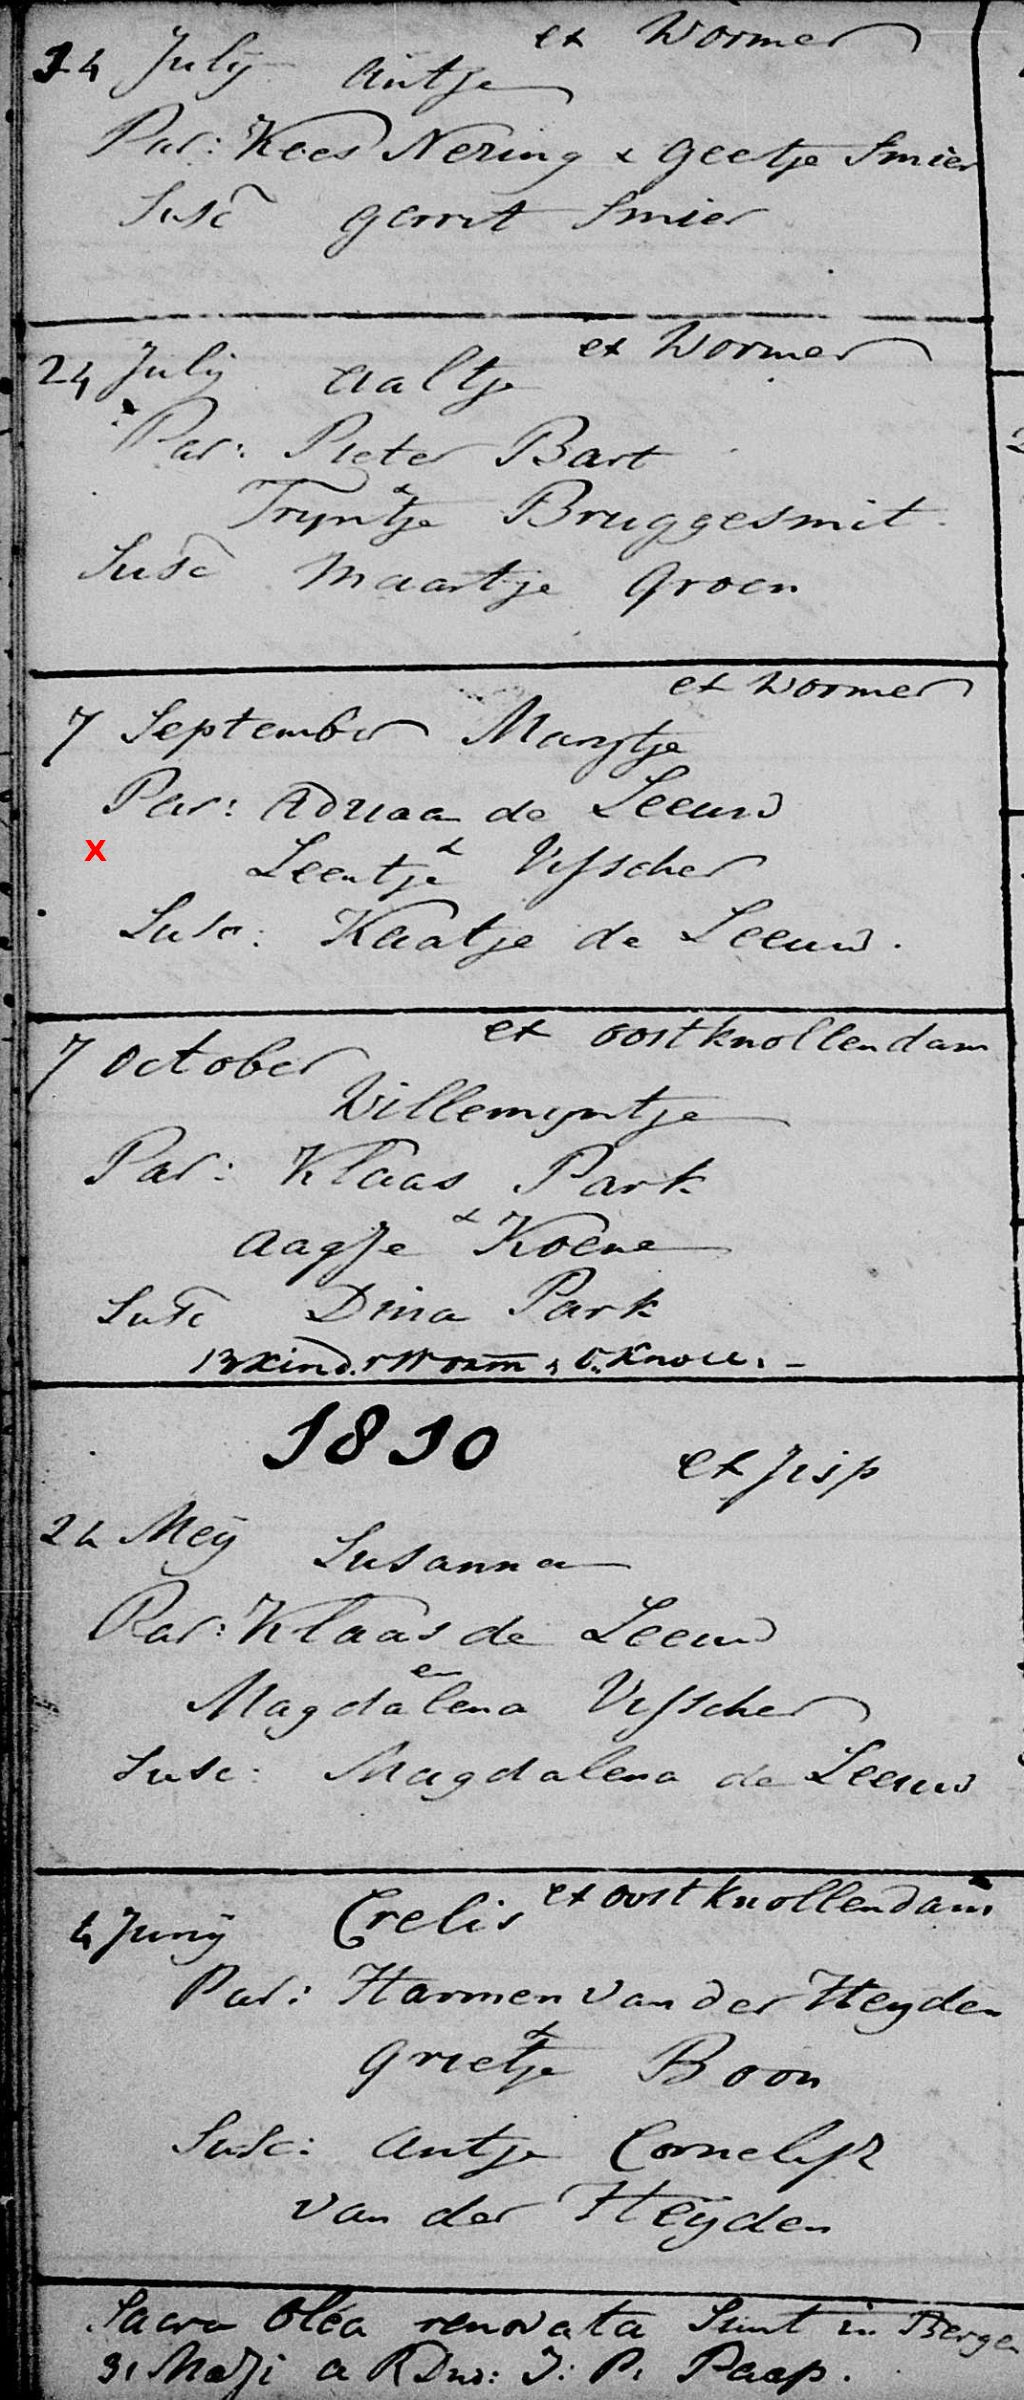 ex Wormer
14 July Antje
Par: Kees Nering & Geetje Smier
Susc Gerrit Smier
ex Wormer
24 July Aaltje
Par: Pieter Bart
&
Tryntje Bruggesmit.
Susc Maartje Groen
ex Wormer
7 September Marytje
Par: Adriaan de Leeuw
x
Leentje & Visscher
Susc: Kaatje de Leeuw.
ex Oostknollendam
7 October
Willemyntje
Par: Klaas Park
&
Aagje Koene
Susc Dina Park
13 Kind. Worm O. Knoll. -
1810
ex Jisp
24 Mey Susanna
Par: Klaas de Leeuw
en
Magdalena Visscher
Susc: Magdalena de Leeuw
ex Oostknollendam
4 Juny Crelis
Par: Harmen van der Heyden
&
Grietje Boon
Susc: Antje Cornelisz
van der Heyden
Sacra Olea renovata Sunt in Bergen
31 Maji a R Dno: J: P. Paap.